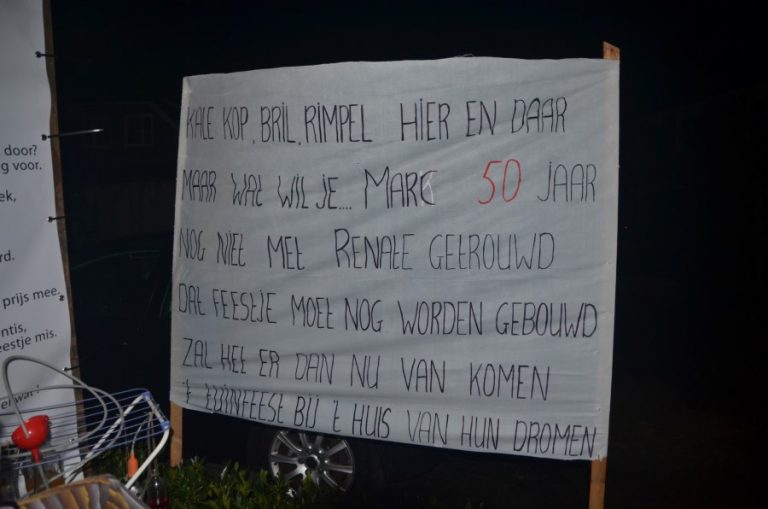 door?
g voor.
ek,
rd.
prijs mee,
ntis,
estje mis.
KALE KOP, BRIL, RIMPEL HIER EN DAAR
MAAR WAT WIL JE.... MARC 50 JAAR
NOG NIET MET RENATE GETROUWD
DAT FEESTJE MOET NOG WORDEN GEBOUWD
ZAL HET ER DAN NU VAN KOMEN
'T TUINFEEST BIJ 'T HUIS VAN HUN DROMEN